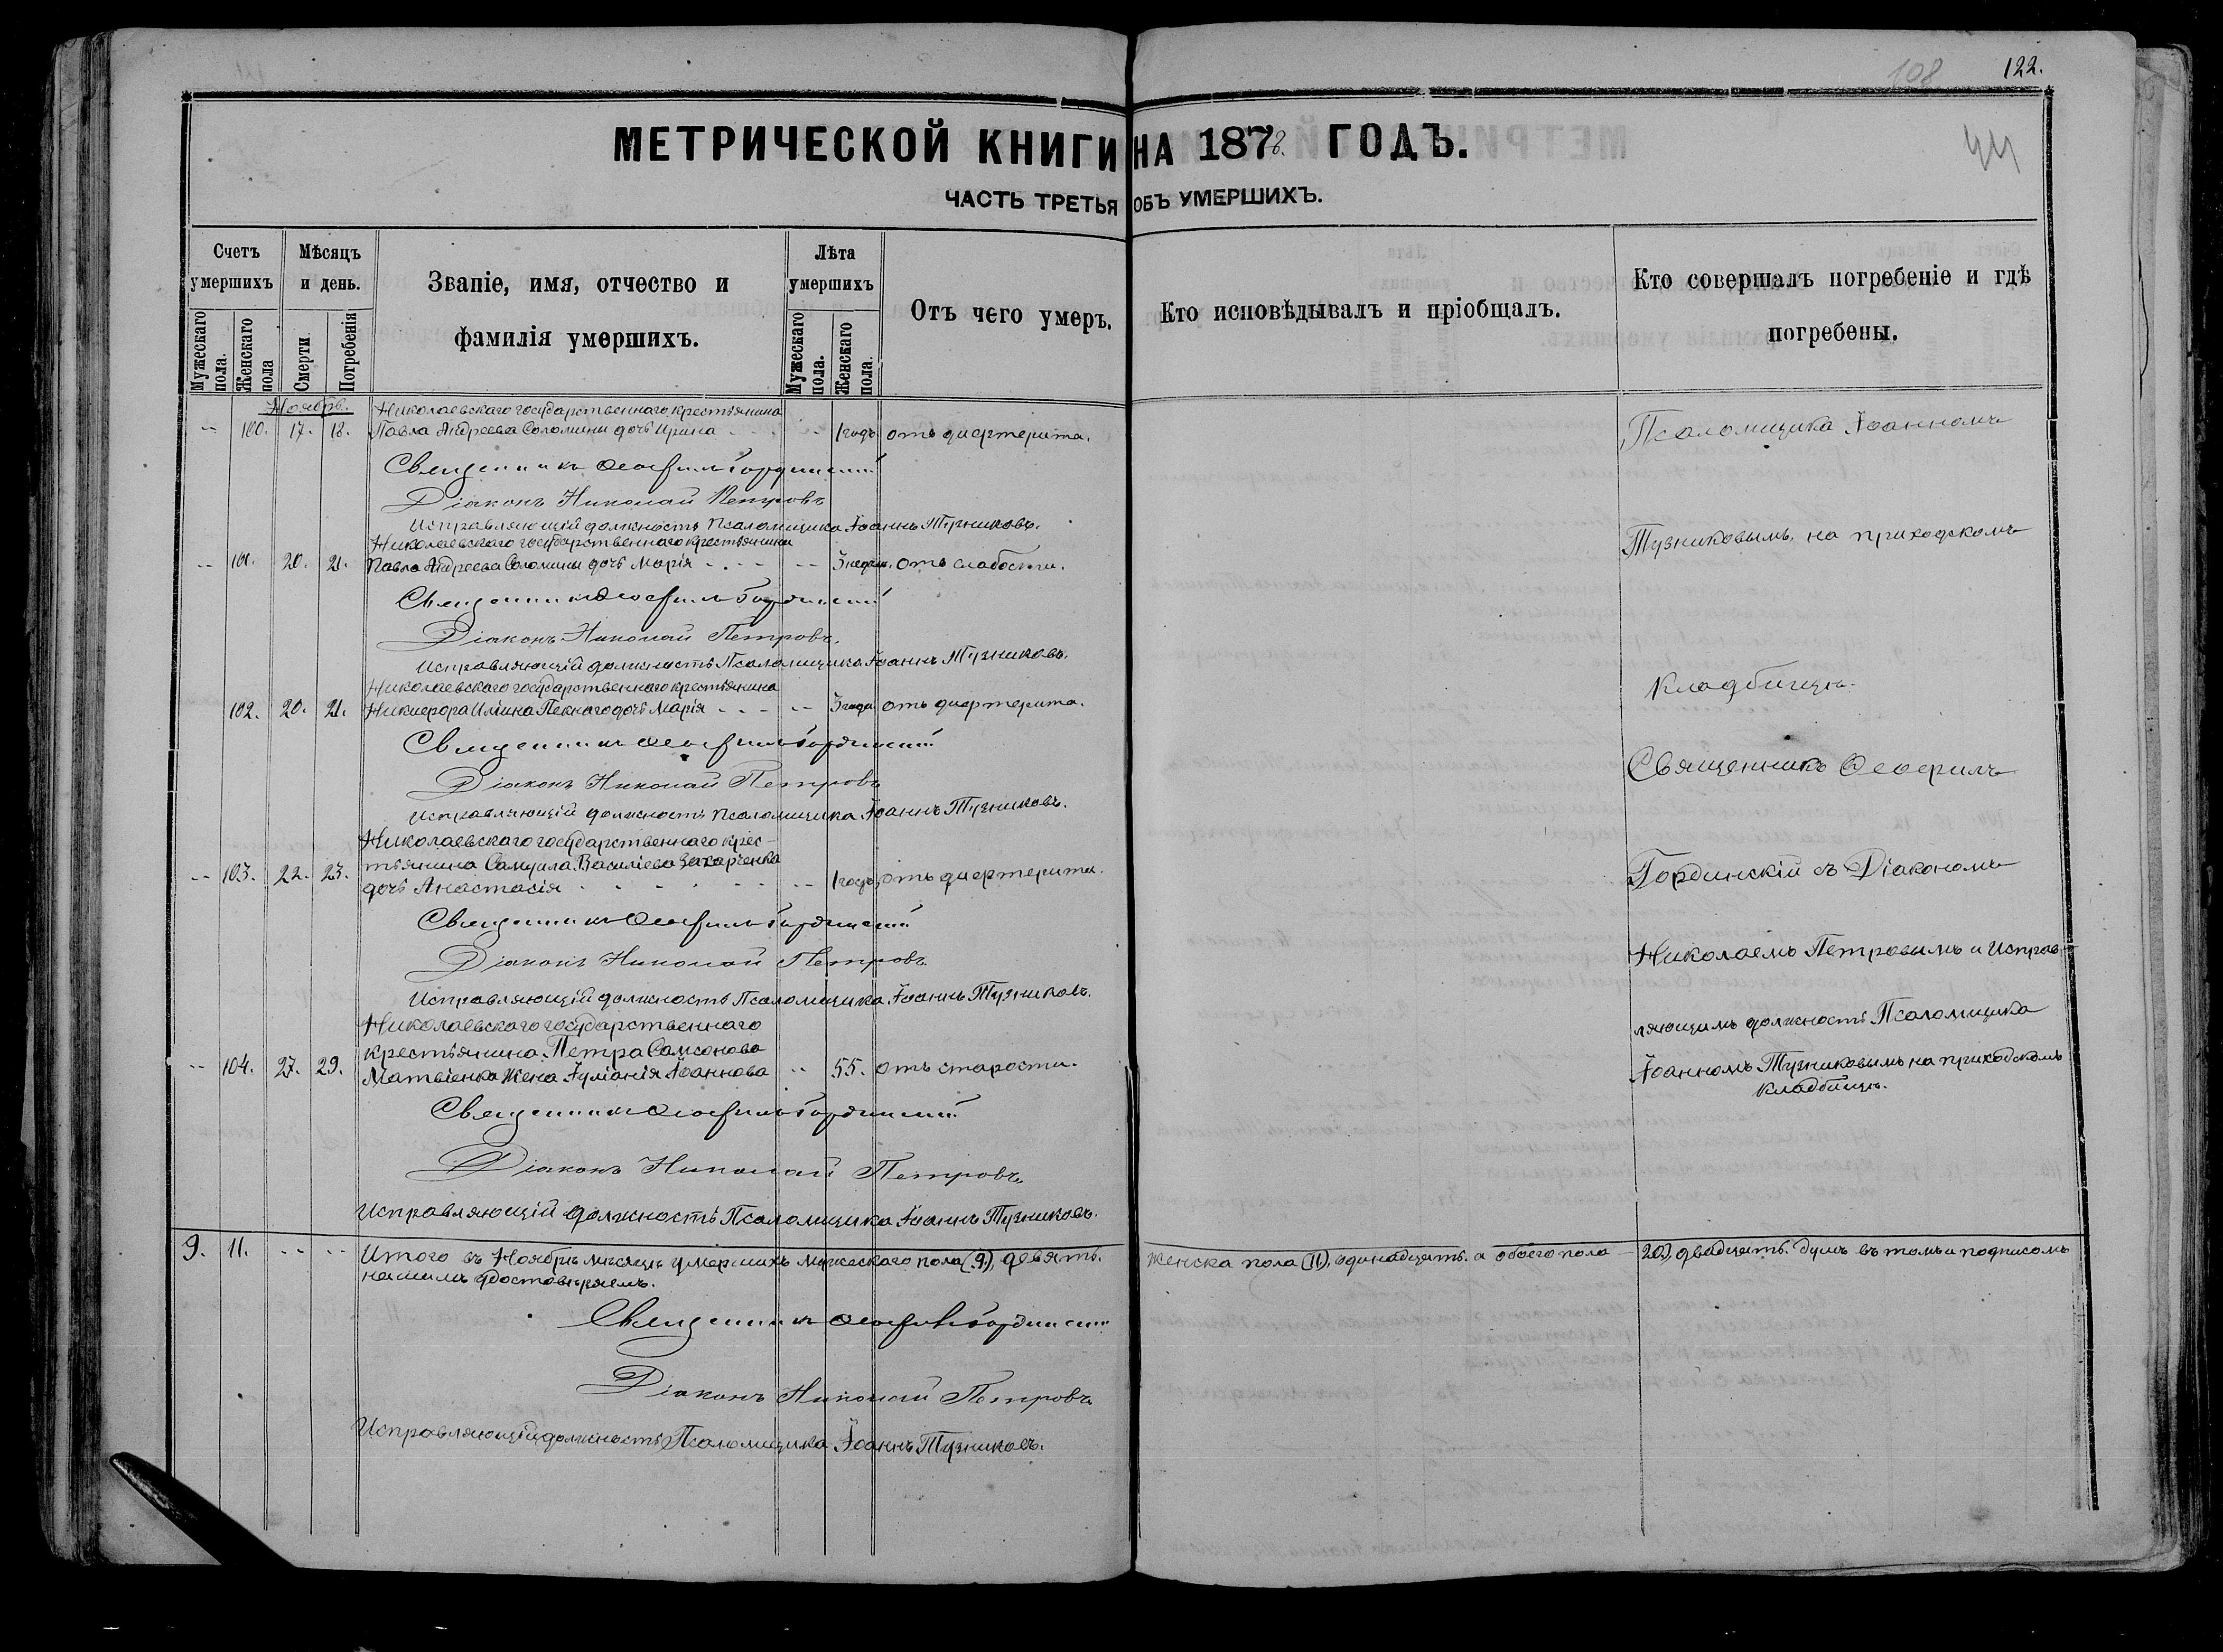 108
122.
44
МЕТРИЧЕСКОЙ КНИГИ НА 1878. ГОДЪ.
ЧАСТЬ ТРЕТЬЯ ОБЪ УМЕРШИХЪ.
Счетъ умершихъ
Мужескаго пола.
Женскаго пола
Мѣсяцъ и день.
Смерти.
Погребенія
Званіе, имя, отчество и
фамилія умершихъ.
Лѣта умершихъ
Мужескаго пола.
Женскаго пола.
Отъ чего умеръ.
Кто исповѣдывалъ и пріобщалъ.
Кто совершалъ погребеніе и гдѣ
погребены.
Ноябрь.
Николаевскаго государственнаго крестьянина
-- 100. 17. 18. Павла Андреева Соломины дочь Ирина - - - -- 1 годъ отъ дифтерита.
Псаломщика Іоанномъ
Священникъ Ѳеофилъ Гординскій
Діаконъ Николай Петровъ
Исправляющій должность Псаломщика Іоаннъ Тузниковъ.
Николаевскаго государственнаго крестьянина
Тузниковымъ, на приходскомъ
-- 101. 20. 21. Павла Андреева Соломины дочь Марія - - - - -- 3 недѣли. отъ слабости.
Священникъ Ѳеофилъ Гординскій
Діаконъ Николай Петровъ.
Исправляющій должность Псаломщика Іоаннъ Тузниковъ.
Николаевскаго государственнаго крестьянина
кладбищѣ.
102. 20. 21. Никифора Иліина Пекнаго дочь Марія - - - - -- 3 года отъ дифтерита.
Священникъ Ѳеофилъ Гординскій
Священникъ Ѳеофилъ
Діаконъ Николай Петровъ
Исправляющій должность Псаломщика Іоаннъ Тузниковъ.
Николаевскаго государственнаго крес-
тьянина Самуила Василіева Захарченка
-- 103. 22. 23. дочь Анастасія - - - - - - -- 1 годъ, отъ дифтерита.
Гординскій съ Діакономъ
Священникъ Ѳеофилъ Гординскій
Діаконъ Николай Петровъ
Николаемъ Петровымъ и Исправ-
Исправляющій должность Псаломщика Іоаннъ Тузниковъ.
Николаевскаго государственнаго
ляющимъ должность Псаломщика
крестьянина Петра Самсонова
-- 104. 27. 29. Матвіенка жена Іуліанія Іоаннова -- 55. отъ старости.
Іоанномъ Тузниковымъ на приходскомъ
кладбищѣ.
Священникъ Ѳеофилъ Гординскій
Діаконъ Николай Петровъ
Исправляющій должность Псаломщика Іоаннъ Тузниковъ.
9. 11. -- -- Итого въ Ноябрѣ мѣсяцѣ умершихъ мужескаго пола (9), девять. женска пола (11), одинадцать. а обоего пола — 20), двадцать. душъ въ томъ и подписомъ
нашимъ удостовѣряемъ.
Священникъ Ѳеофилъ Гординскій
Діаконъ Николай Петровъ
Исправляющій должность Псаломщика Іоаннъ Тузниковъ.